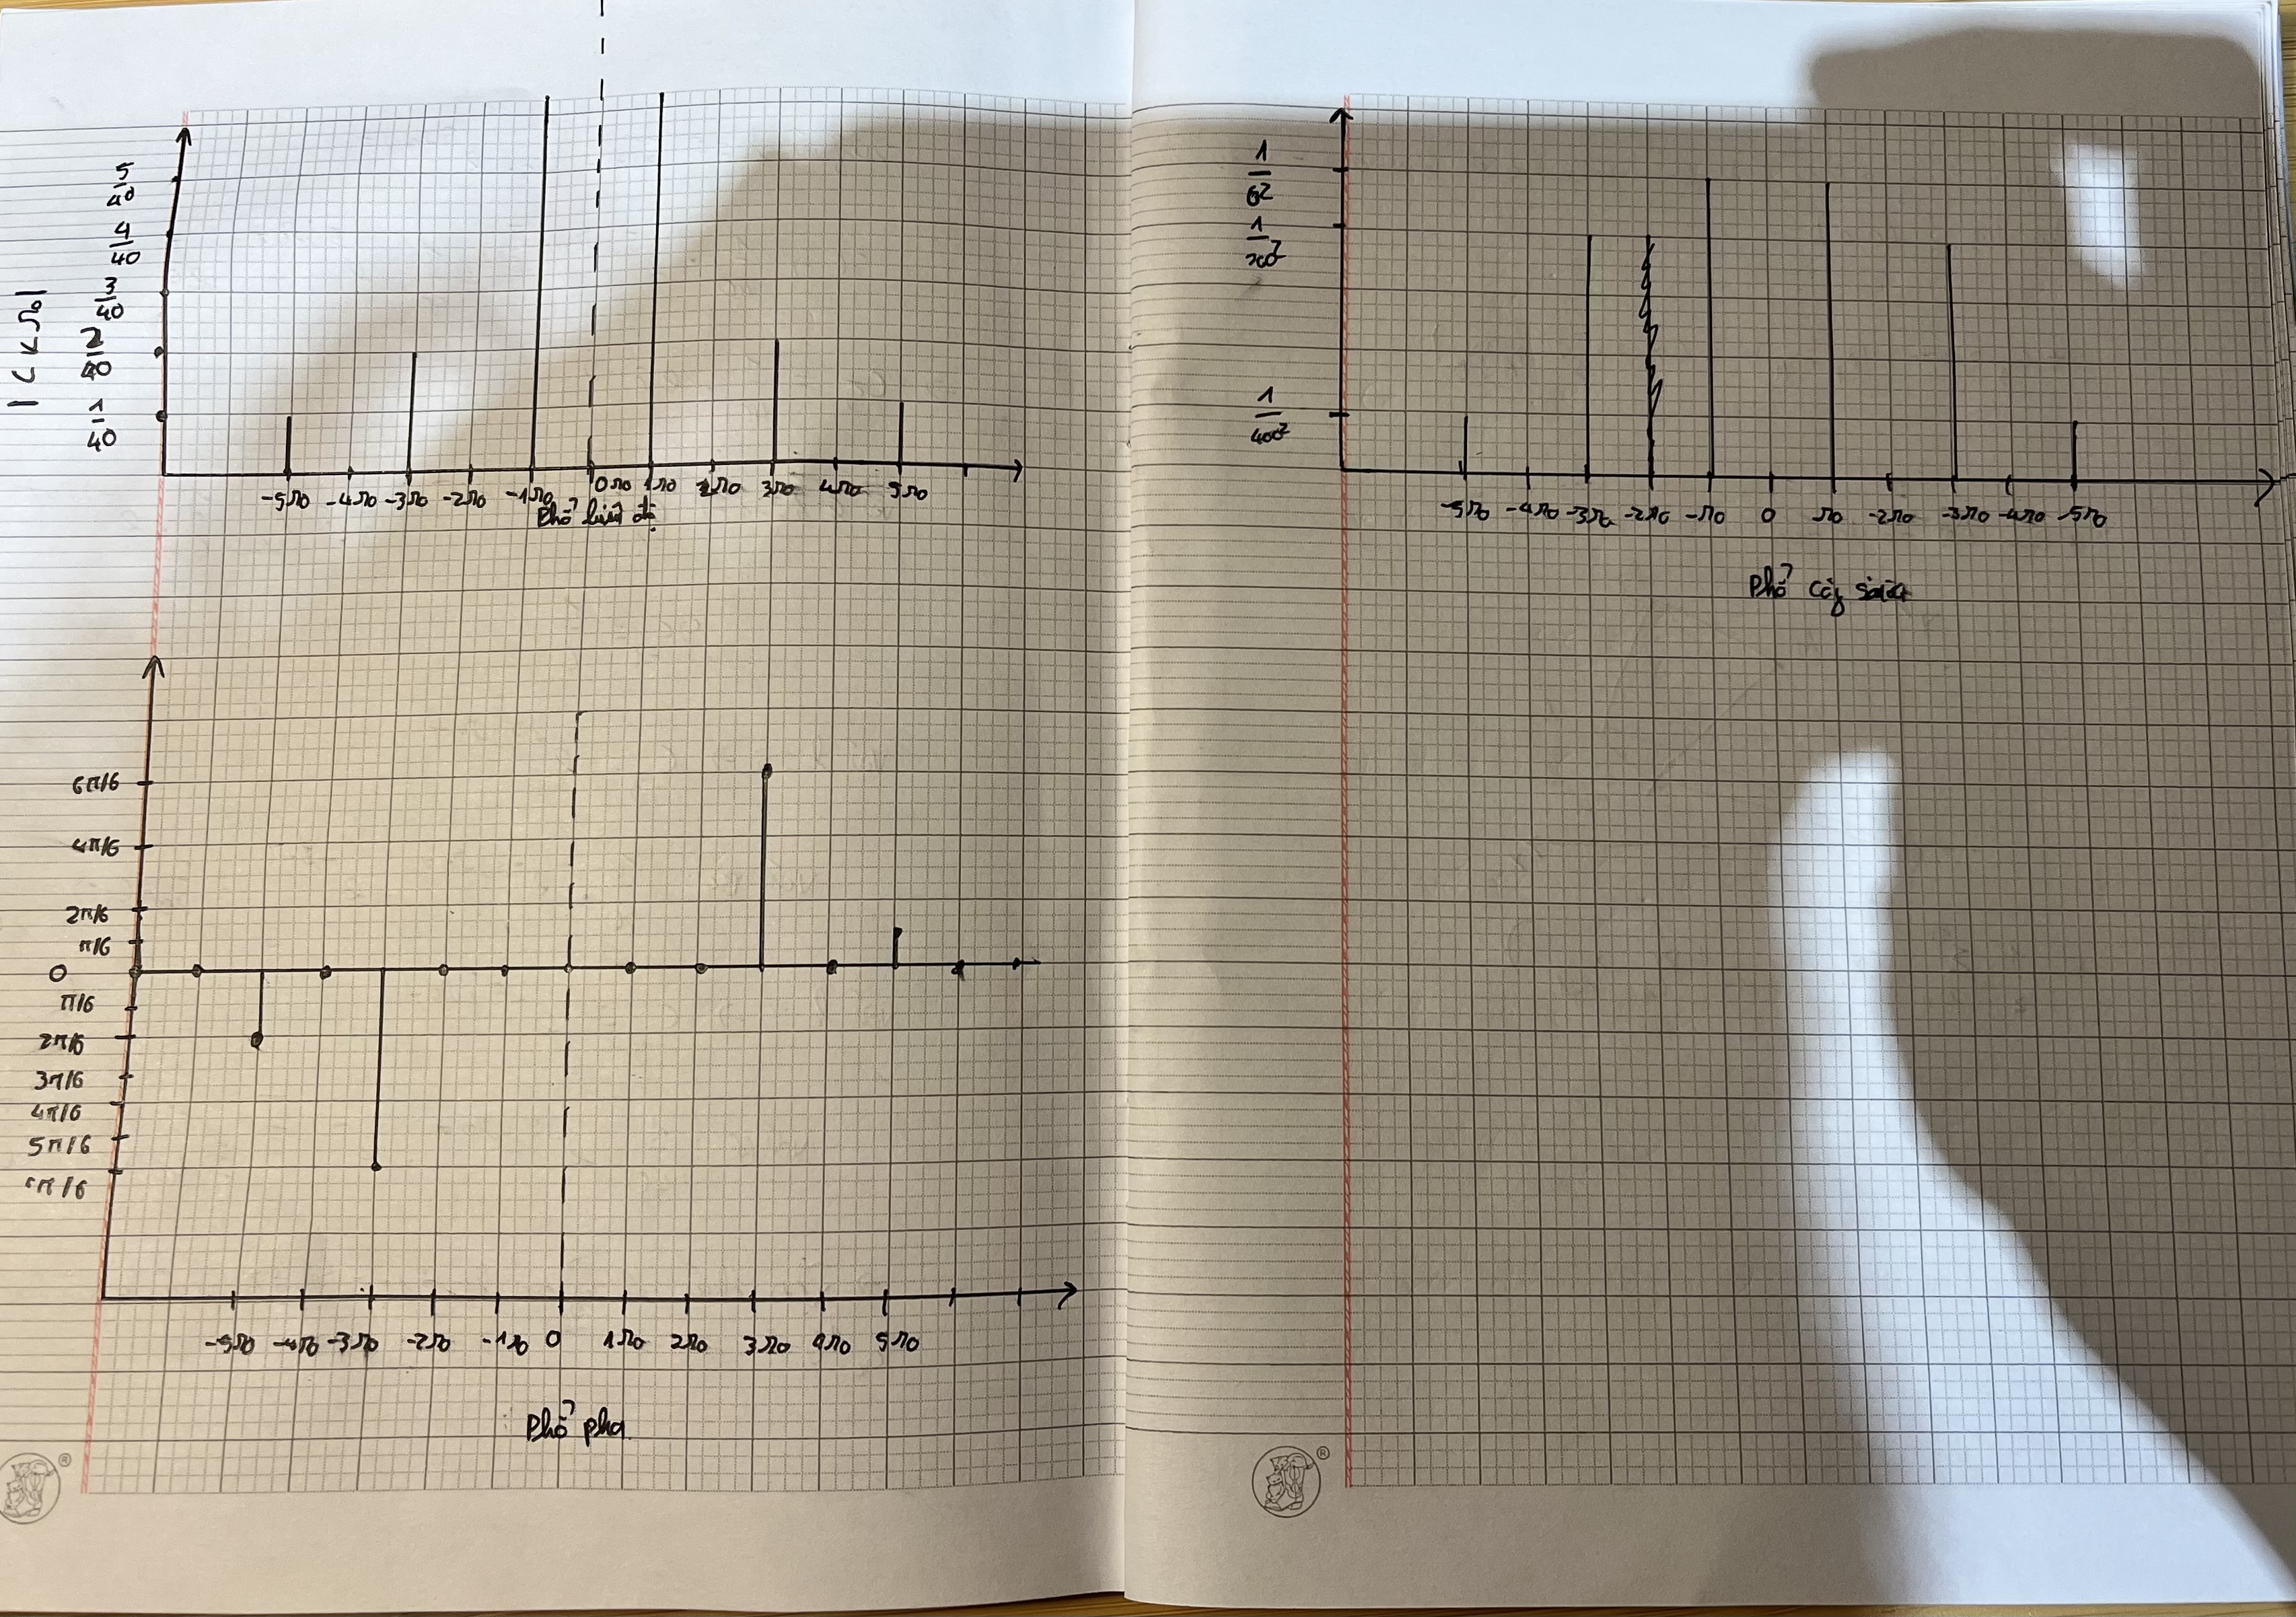 5/40
4/40
3/40
2/40
1/40
|CkΩ0|
-5Ω0 -4Ω0 -3Ω0 -2Ω0 -1Ω0 0Ω0 1Ω0 2Ω0 3Ω0 4Ω0 5Ω0
Phổ biên độ
6π/6
4π/6
2π/6
π/6
0
π/6
2π/6
3π/6
4π/6
5π/6
π/6
-5Ω0 -4Ω0 -3Ω0 -2Ω0 -1Ω0 0 1Ω0 2Ω0 3Ω0 4Ω0 5Ω0
Phổ pha
®
1/6²
1/20²
1/400²
-5Ω0 -4Ω0 -3Ω0 -2Ω0 -Ω0 0 Ω0 -2Ω0 -3Ω0 -4Ω0 -5Ω0
Phổ
®